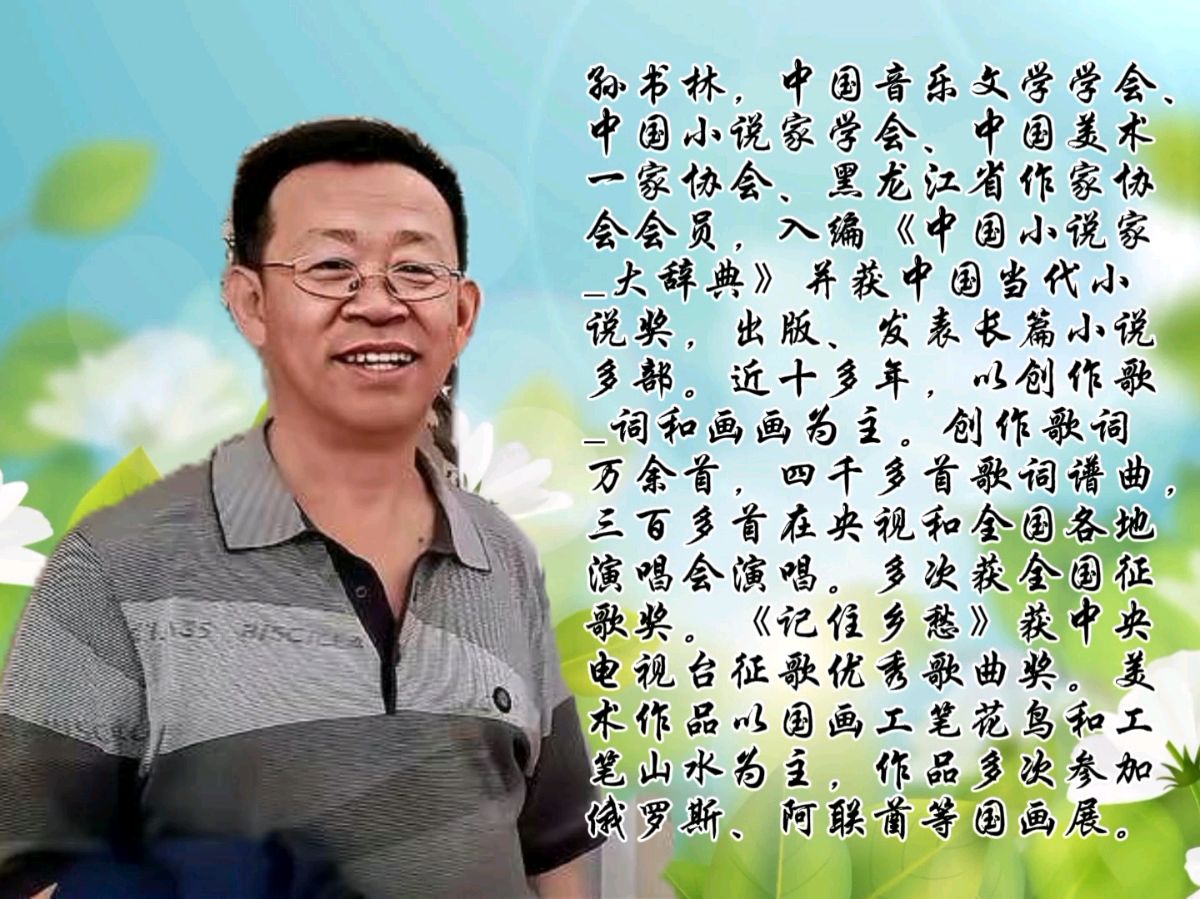 孙书林，中国音乐文学学会、
中国小说家学会、中国美术
一家协会、黑龙江省作家协
会会员，入编《中国小说家
_大辞典》并获中国当代小
说奖，出版、发表长篇小说
多部。近十多年，以创作歌
_词和画画为主。创作歌词
万余首，四千多首歌词谱曲，
三百多首在央视和全国各地
演唱会演唱。多次获全国征
歌奖。《记住乡愁》获中央
电视台征歌优秀歌曲奖。美
术作品以国画工笔花鸟和工
笔山水为主，作品多次参加
俄罗斯、阿联酋等国画展。